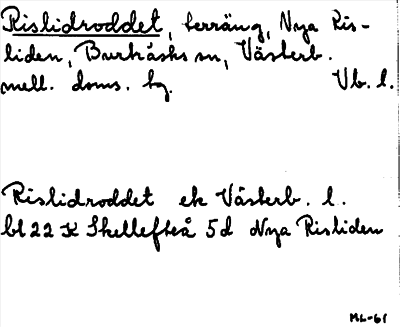 Rislidroddet, terräng, Nya Ris-
liden, Burträsks sn, Västerb.
mell. doms. hg. Vb. l.
Rislidroddet ek Västerb. l.
bl 22 K Skellefteå 5d Nya Risliden
ML-61